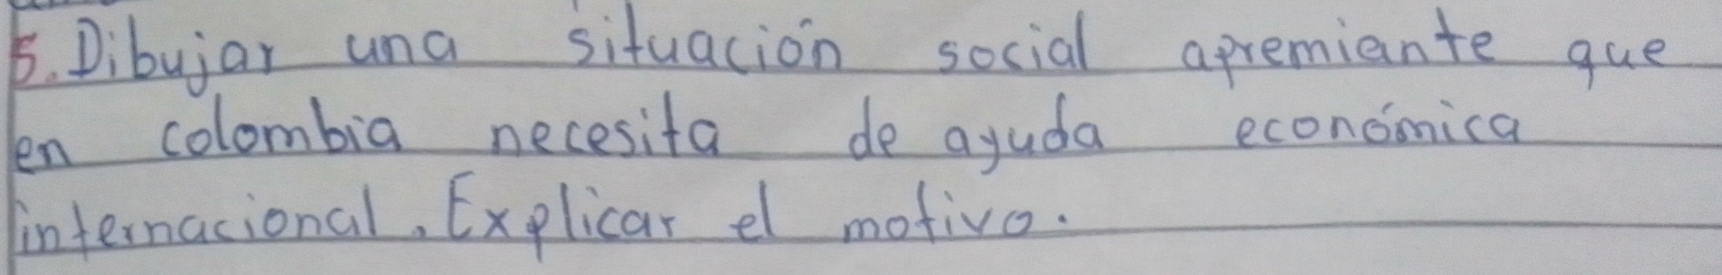 5. Dibujar una situación social apremiante que
en colombia necesita de ayuda económica
internacional. Explicar el motivo.